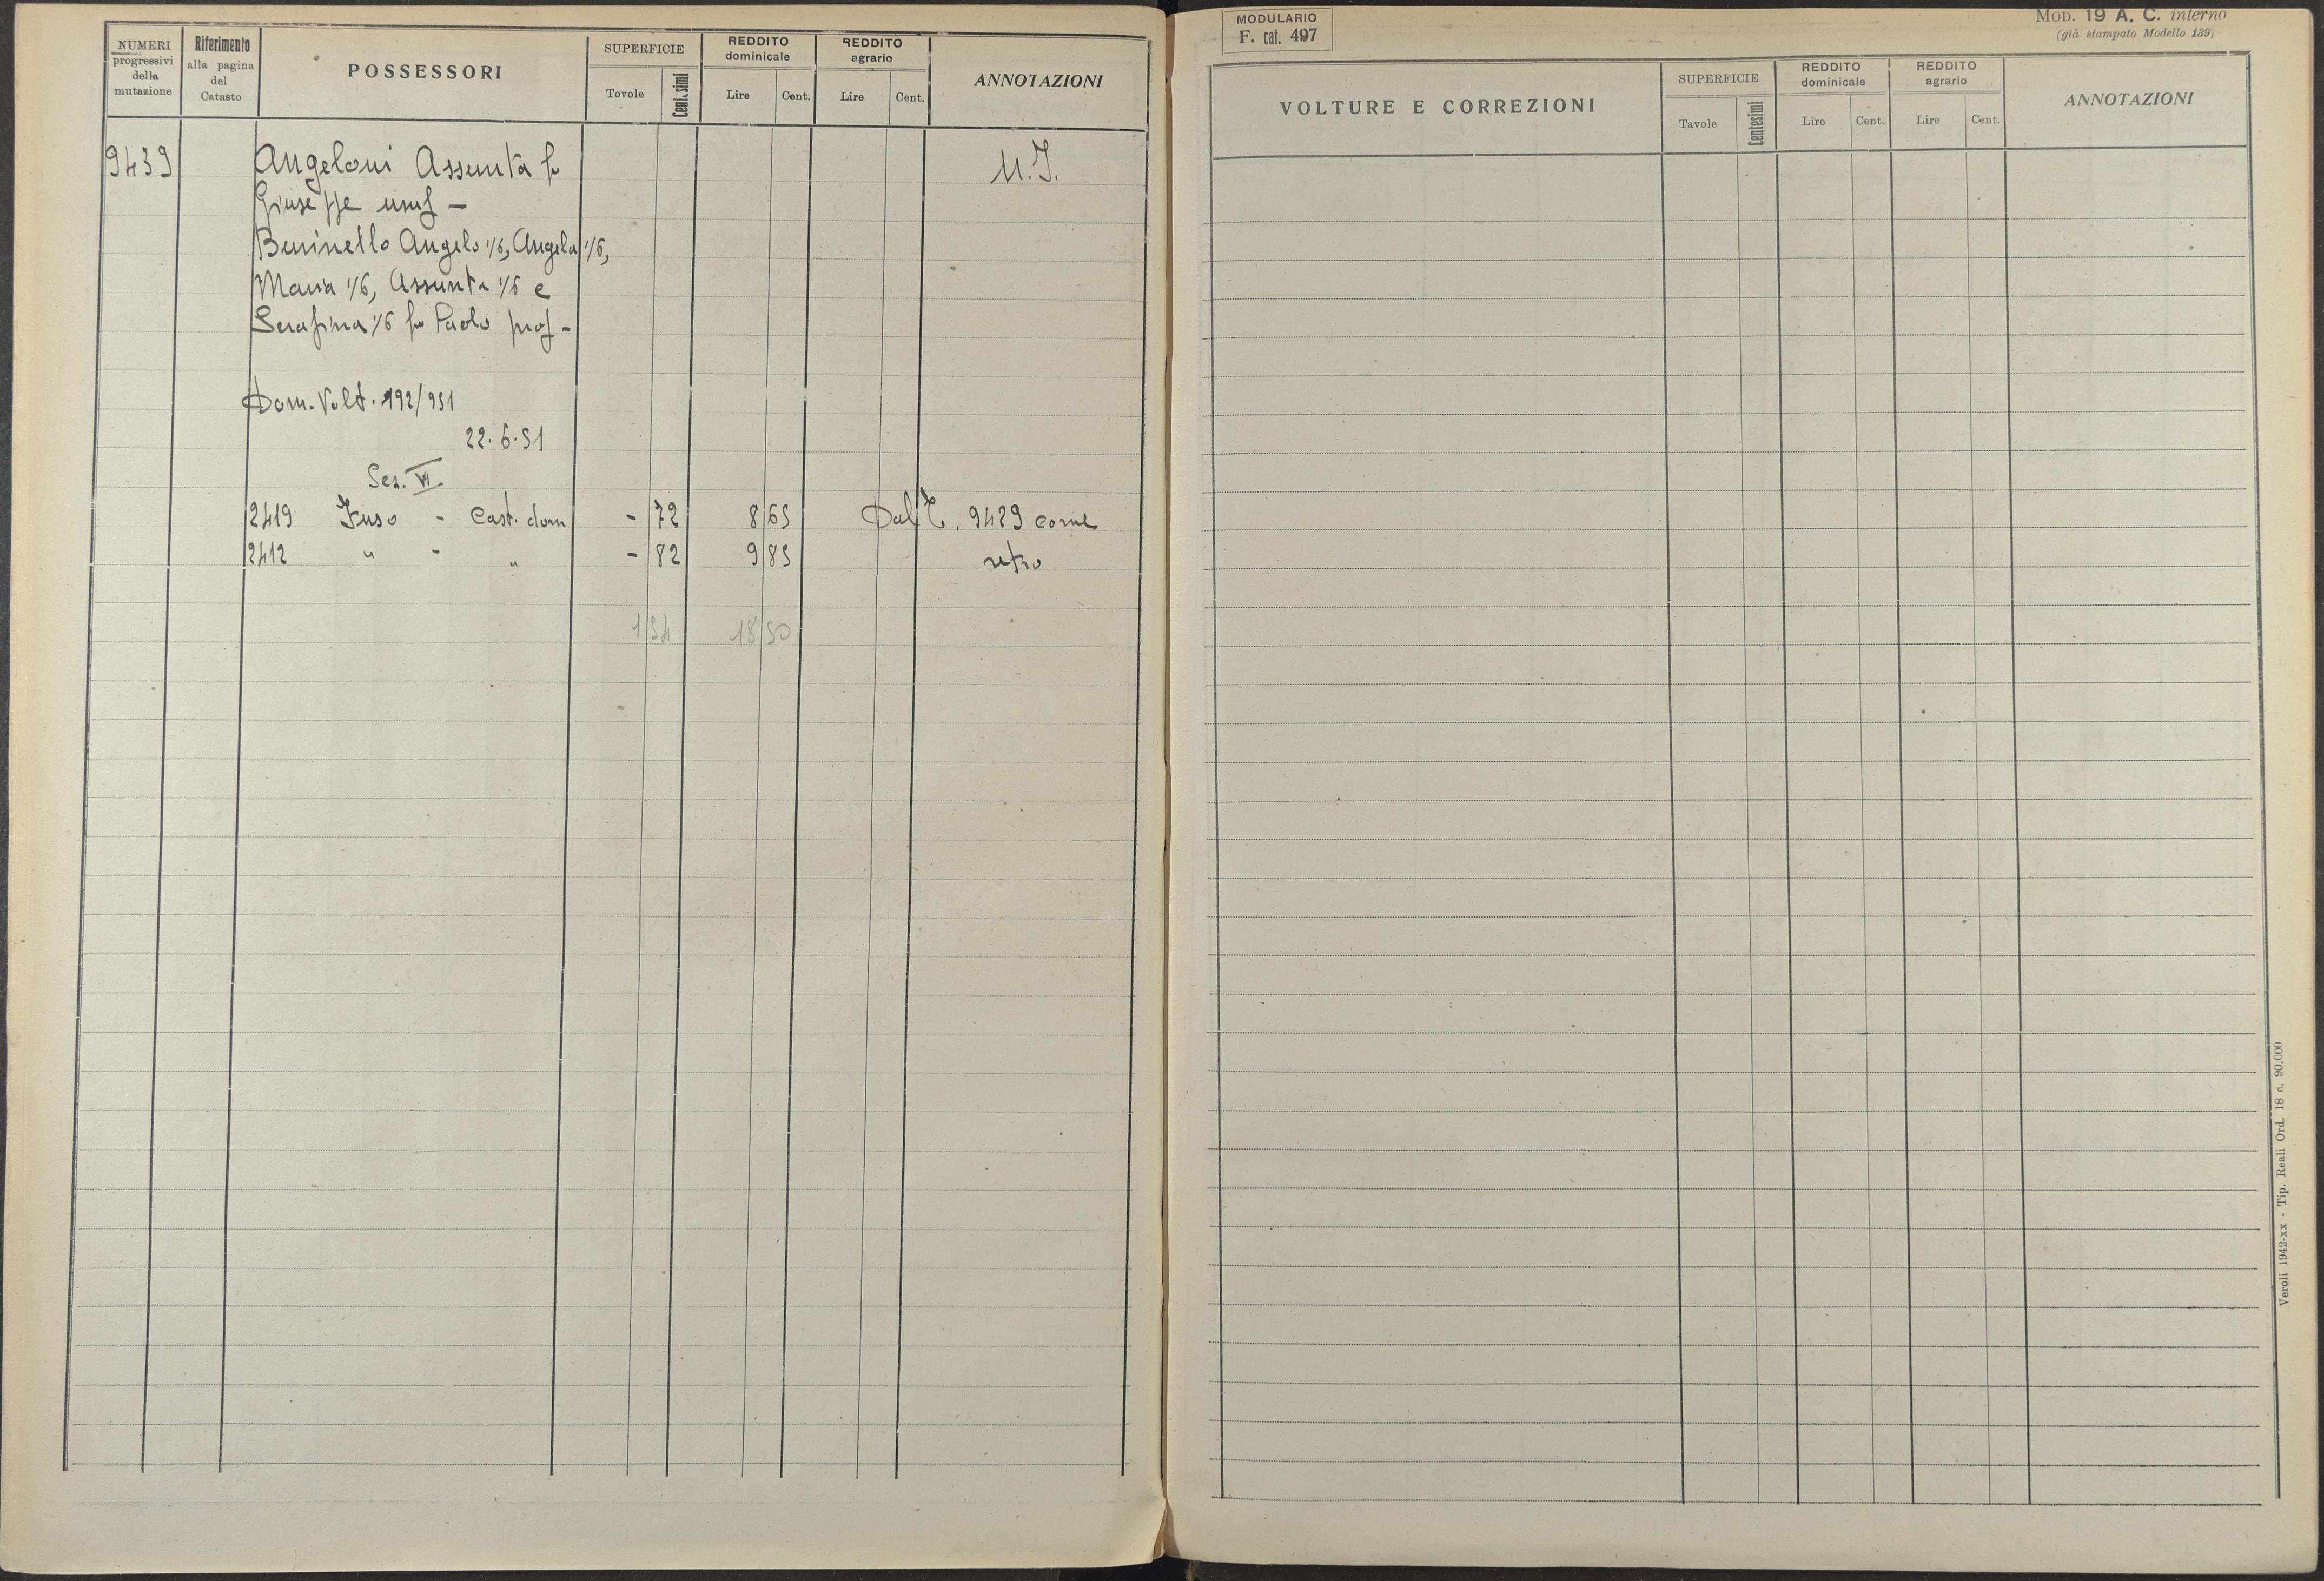 NUMERI progressivi della mutazione
Riferimento alla pagina del Catasto
POSSESSORI
SUPERFICIE
Tovole
Centesimi
REDDITO dominicale
Lire
Cent.
REDDITO agrario
Lire
Cent.
ANNOTAZIONI
9439
Angeloni Assunta fu
M.I.
Giuseppe usuf -
Beninello Angelo 1/6, Angela 1/6,
Maria 1/6, Assunta 1/6 e
Serafina 1/6 fu Paolo prof -
Dom. Volt. 192/951
22.6.51
Sez. VI
2419 Fuso - Cast. dom - 72 8 65 Dal T. 9429 come
2412 " - " - 82 9 85 retro
1 54 18 50
MODULARIO
F. cat. 497
MOD. 19 A. C. interno
(già stampato Modello 139)
VOLTURE E CORREZIONI
SUPERFICIE
Tavole
Centesimi
REDDITO dominicale
Lire
Cent.
REDDITO agrario
Lire
Cent.
ANNOTAZIONI
Veroli 1942-xx - Tip. Reali Ord. 18 c. 90.000